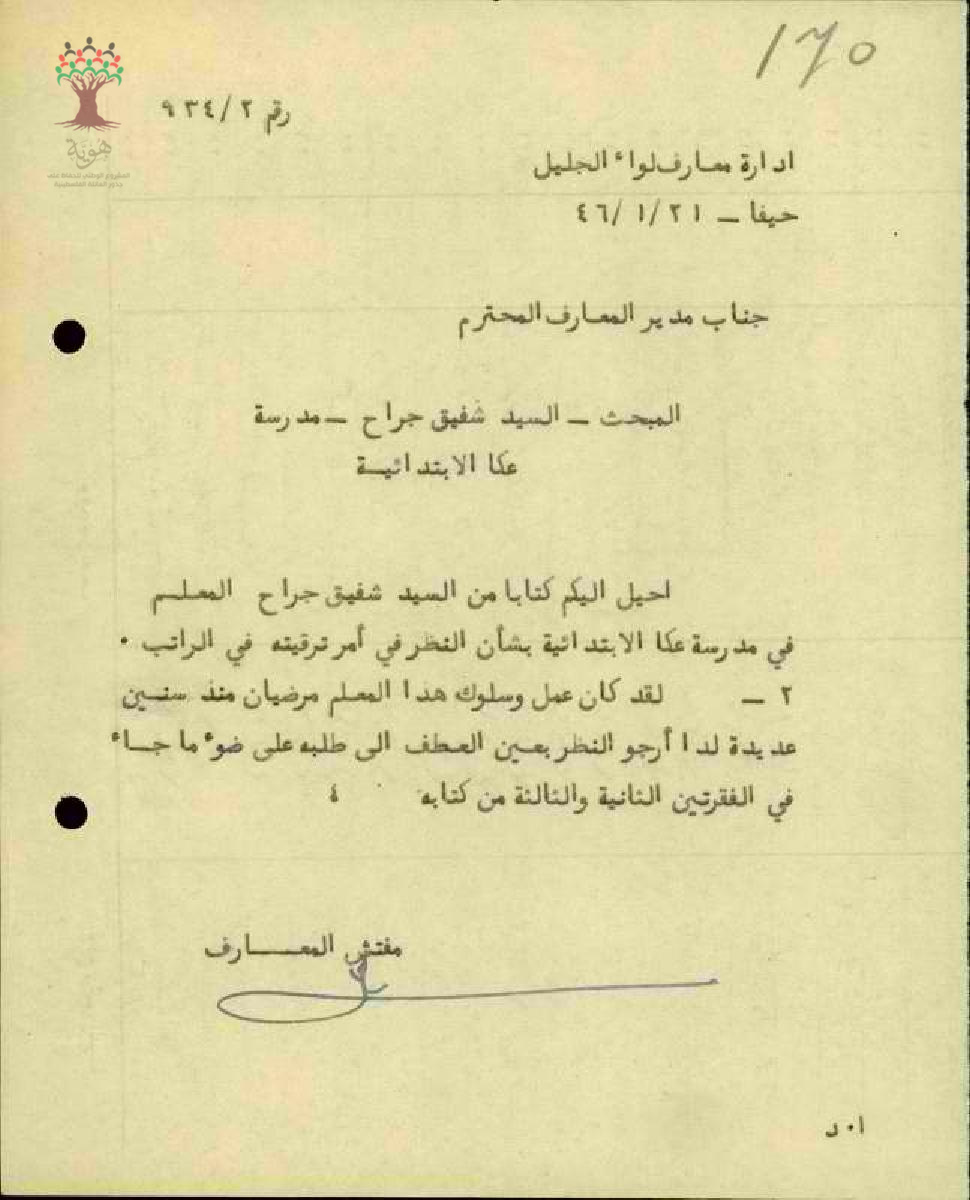 170
هوية
المشروع الوطني للحفاظ على
جذور العائلة الفلسطينية
رقم ٩٣٤/٢
ادارة معارف لواء الجليل
حيفا – ٤٦/١/٢١
جناب مدير المعارف المحترم
المبحث – السيد شفيق جراح – مدرسة
عكا الابتدائية
احيل اليكم كتابا من السيد شفيق جراح المعلم
في مدرسة عكا الابتدائية بشأن النظر في أمر ترقيته في الراتب .
٢ – لقد كان عمل وسلوك هدا المعلم مرضيان منذ سنين
عديدة لدا أرجو النظر بعين العطف الى طلبه على ضوء ما جاء
في الفقرتين الثانية والثالثة من كتابه ٤
مفتش المعارف
ا٠د